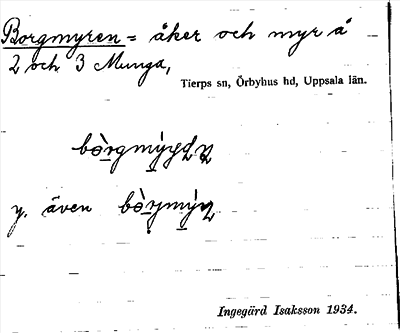 Borgmyren = åker och myr å
2 och 3 Munga,
Tierps sn, Örbyhus hd, Uppsala län.
y. även
Ingegärd Isaksson 1934.